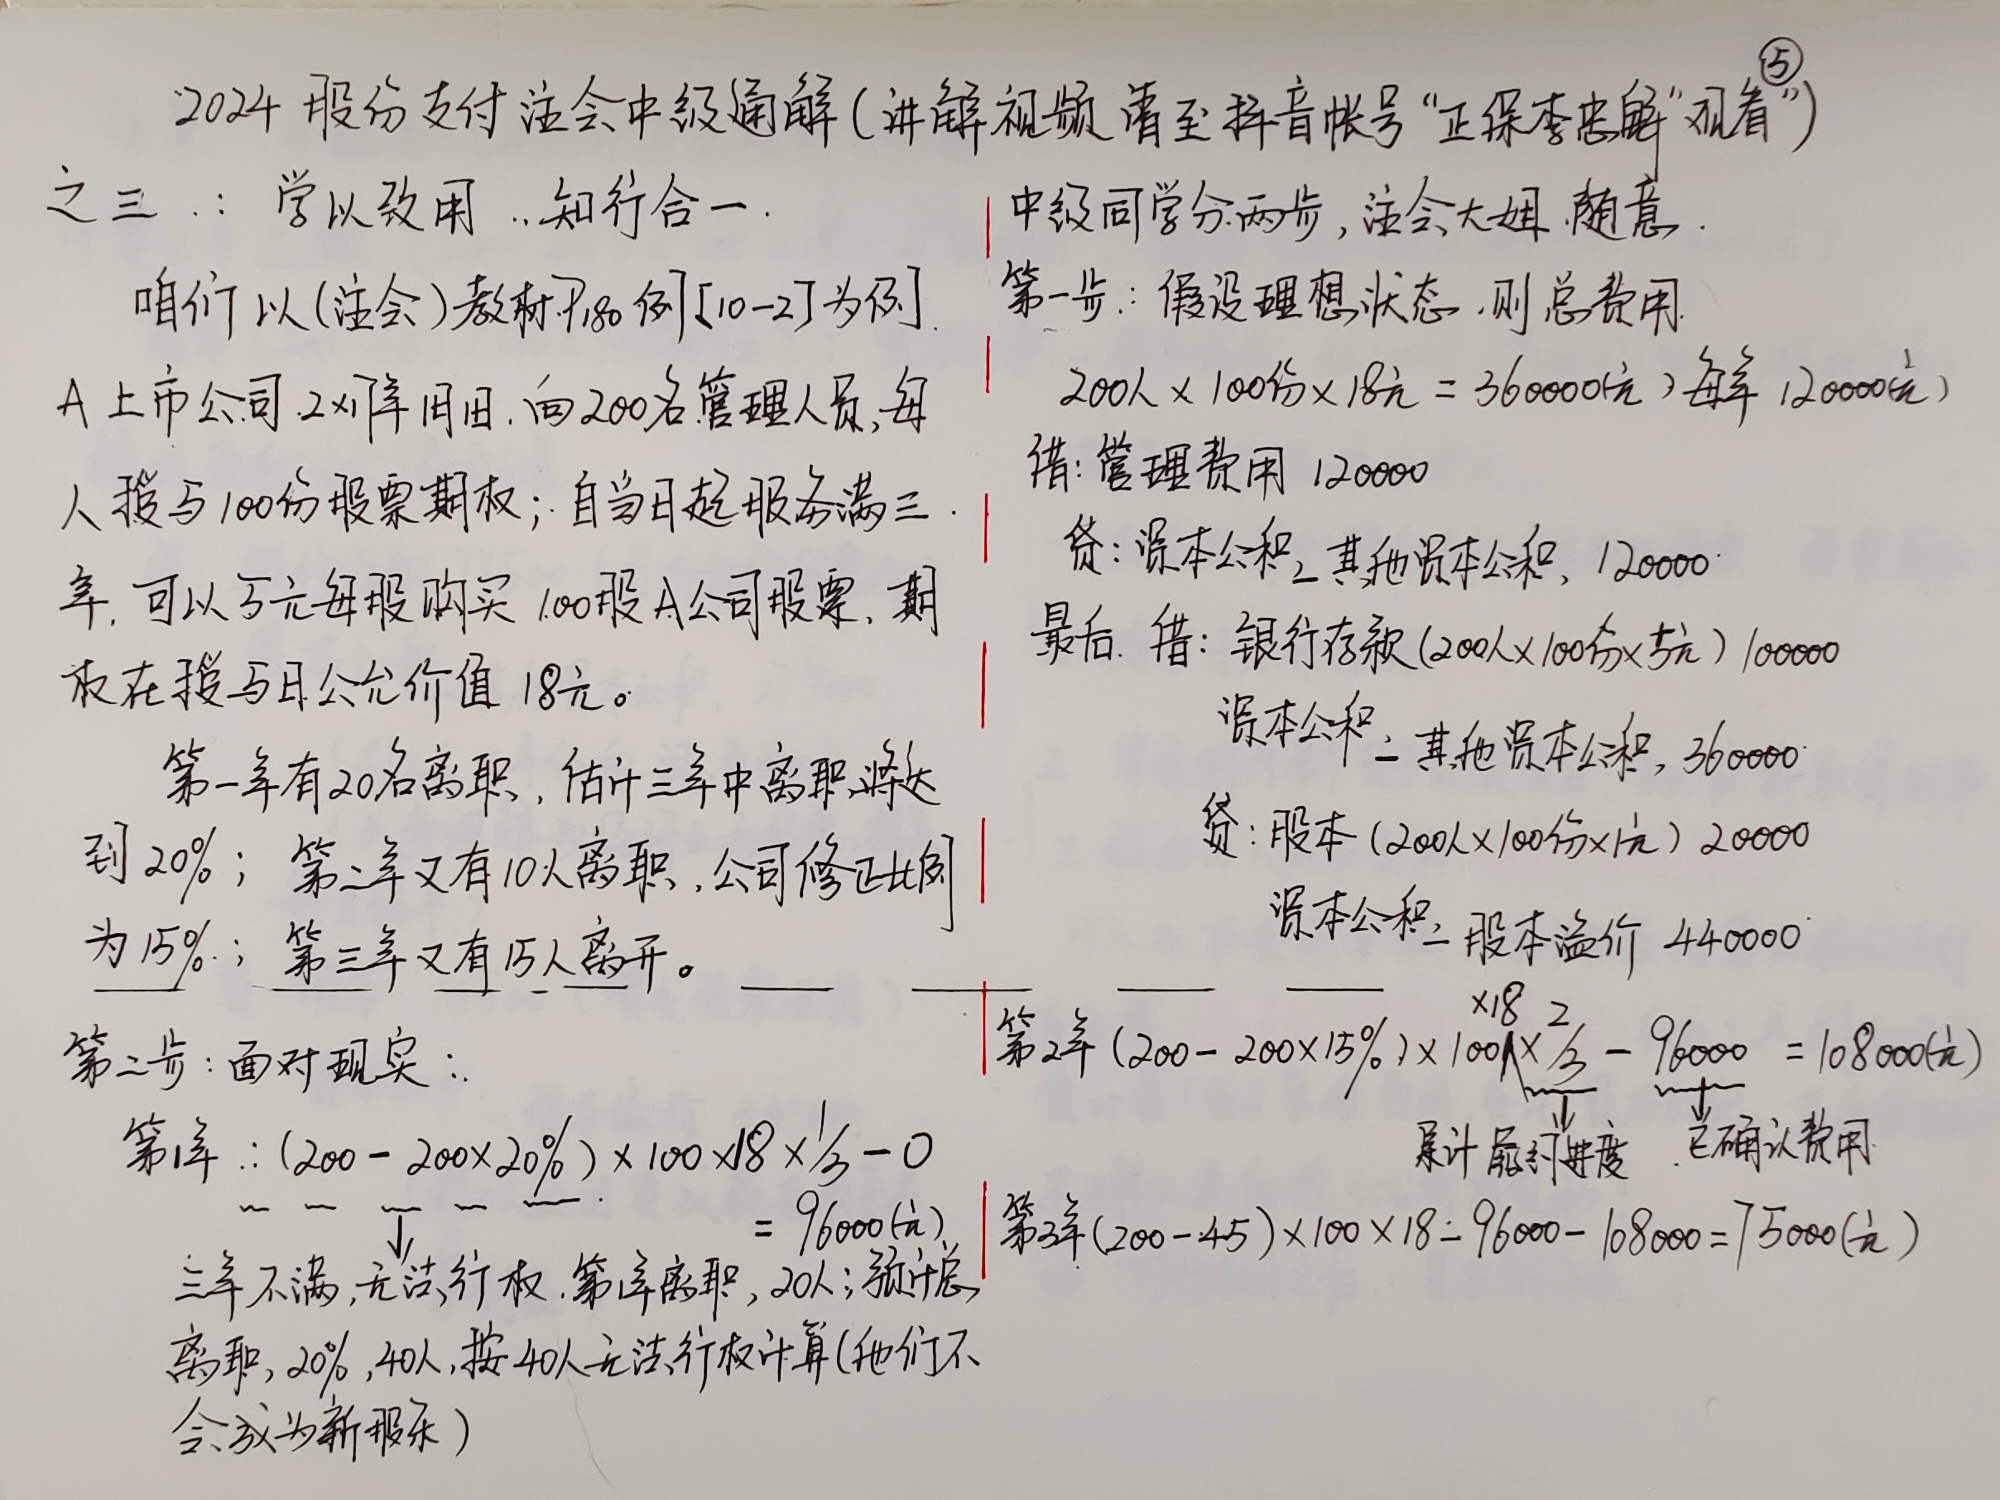 ⑤
2024 股份支付注会中级通解(讲解视频请至抖音帐号“正保李忠解”观看”)
之三：学以致用..知行合一.
咱们以(注会)教材P180例[10-2]为例.
A上市公司2×1年1月1日.向200名管理人员,每
人授与100份股票期权;自当日起服务满三
年,可以5元每股购买100股A公司股票,期
权在授与日公允价值18元。
第一年有20名离职,估计三年中离职将达
到20%;第二年又有10人离职,公司修正比例
为15%;第三年又有15人离开。
中级同学分两步,注会大姐.随意.
第一步:假设理想状态.则总费用
200人×100份×18元=360000(元)每年120000(元)
借:管理费用 120000
贷:资本公积_其他资本公积,120000
最后.借:银行存款(200人×100份×5元)100000
资本公积_其他资本公积,360000
贷:股本(200人×100份×1元)20000
资本公积_股本溢价 440000
第二步:面对现实:
第1年:(200-200×20%)×100×18×1/3-0
=96000(元)
三年不满,无法行权.第1年离职,20人;预计总
离职,20%,40人,按40人无法行权计算(他们不
会成为新股东)
第2年(200-200×15%)×100×18×2/3-96000=108000(元)
累计履约进度 已确认费用
第3年(200-45)×100×18-96000-108000=75000(元)